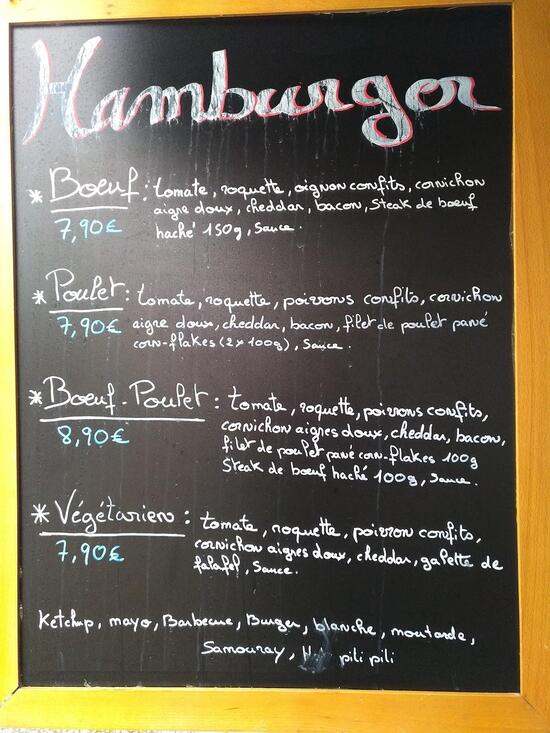 Hamburger
* Boeuf : tomate, roquette, oignon confits, cornichon
aigre doux, cheddar, bacon, Steak de boeuf
7,90€ haché 150g, Sauce.
* Poulet : tomate, roquette, poivrons confits, cornichon
7,90€ aigre doux, cheddar, bacon, filet de poulet pané
corn-flakes (2x100g), Sauce.
* Boeuf-Poulet : tomate, roquette, poivrons confits,
8,90€ cornichon aigres doux, cheddar, bacon,
filet de poulet pané corn-flakes 100g
Steak de boeuf haché 100g, Sauce.
* Végétarien : tomate, roquette, poivron confits,
7,90€ cornichon aigres doux, cheddar, galette de
falafel, Sauce.
Ketchup, mayo, Barbecue, Burger, blanche, moutarde,
Samouray, pili pili